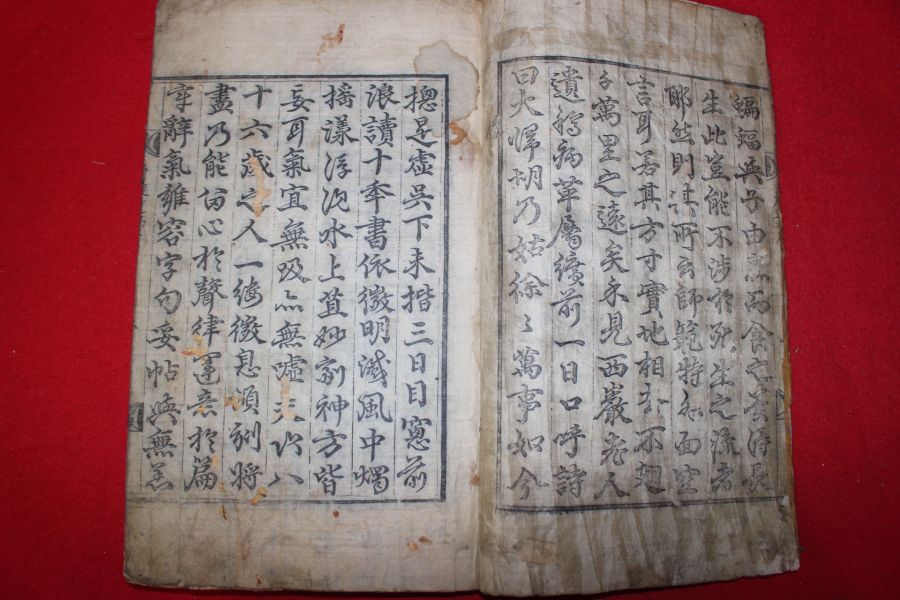 蝙蝠與子由烝而食之壽得長
生此豈能不涉於死生之疾者
耶然則所云師範特而空
言耳若其方寸實地相去不翅
千萬里之遠矣永見西巖老人
遺稿病革屬纊前一日口呼詩
曰大歸胡乃姑徐徐萬事如今
摠是虛吳下未揩三日目窓前
浪讀十季書依微明滅風中燭
搖漾浮沉水上苴妙劑神方皆
妄耳氣宜無吸亦無噓六八
十六歲之人一縷微息頃刻將
盡乃能留心於聲律運意於篇
章辭氣雍容字句妥帖與無恙